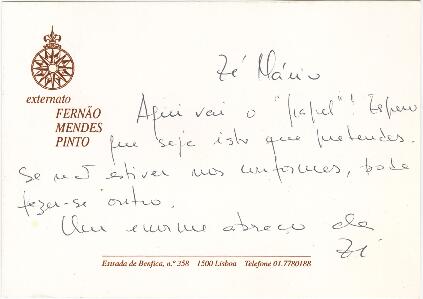 externato
FERNÃO
MENDES
PINTO
Zé Mário
Aqui vai o "papel"! Espero
que seja isto que pretendes.
Se não estiver nos conformes, pode
fazer-se outro.
Um enorme abraço da
Zé
Estrada de Benfica, n.º 358 1500 Lisboa Telefone 01.7780188